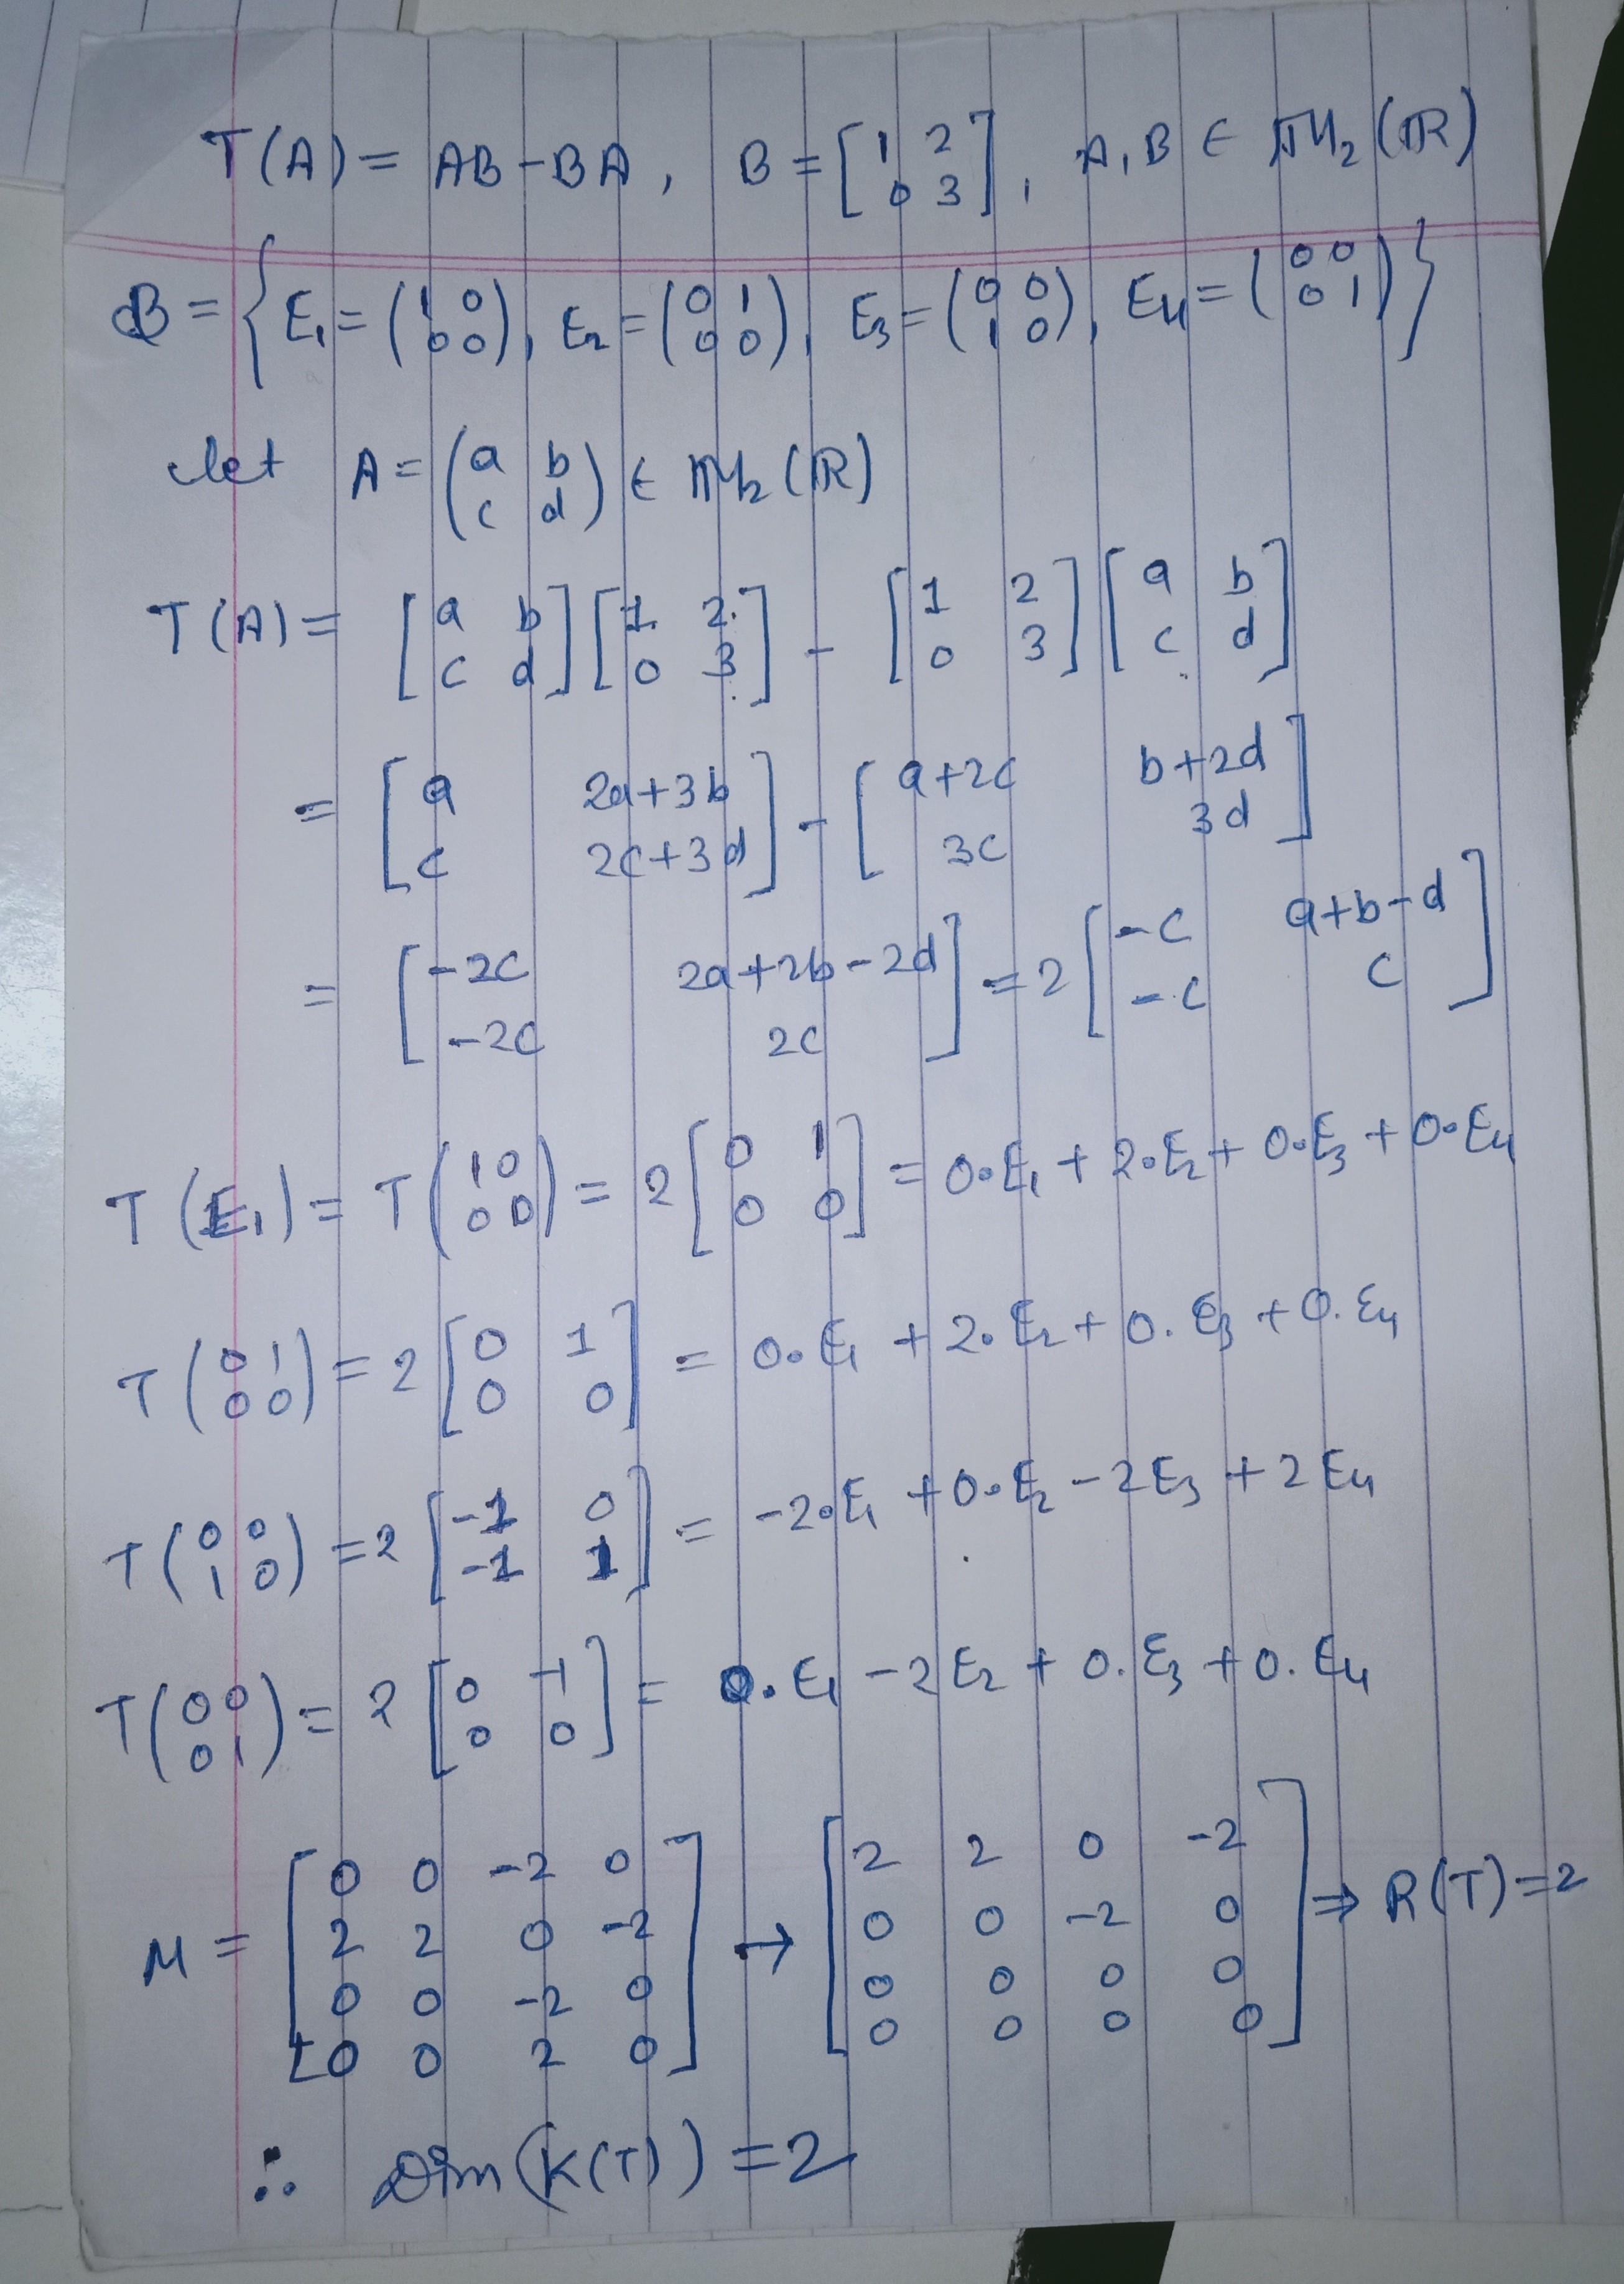 T(A) = AB - BA, B = [1 2; 0 3], A, B ∈ M₂(ℝ)
B = {E₁ = (1 0; 0 0), E₂ = (0 1; 0 0), E₃ = (0 0; 1 0), E₄ = (0 0; 0 1)}
let A = (a b; c d) ∈ M₂(ℝ)
T(A) = [a b; c d] [1 2; 0 3] - [1 2; 0 3] [a b; c d]
= [a 2a+3b; c 2c+3d] - [a+2c b+2d; 3c 3d]
= [-2c 2a+2b-2d; -2c 2c] = 2 [-c a+b-d; -c c]
T(E₁) = T(1 0; 0 0) = 2 [0 1; 0 0] = 0·E₁ + 2·E₂ + 0·E₃ + 0·E₄
T(0 1; 0 0) = 2 [0 1; 0 0] = 0·E₁ + 2·E₂ + 0·E₃ + 0·E₄
T(0 0; 1 0) = 2 [-1 0; -1 1] = -2·E₁ + 0·E₂ - 2E₃ + 2E₄
T(0 0; 0 1) = 2 [0 -1; 0 0] = 0·E₁ - 2E₂ + 0·E₃ + 0·E₄
M = [0 0 -2 0; 2 2 0 -2; 0 0 -2 0; 0 0 2 0] → [2 2 0 -2; 0 0 -2 0; 0 0 0 0; 0 0 0 0] ⇒ R(T) = 2
∴ Dim(K(T)) = 2